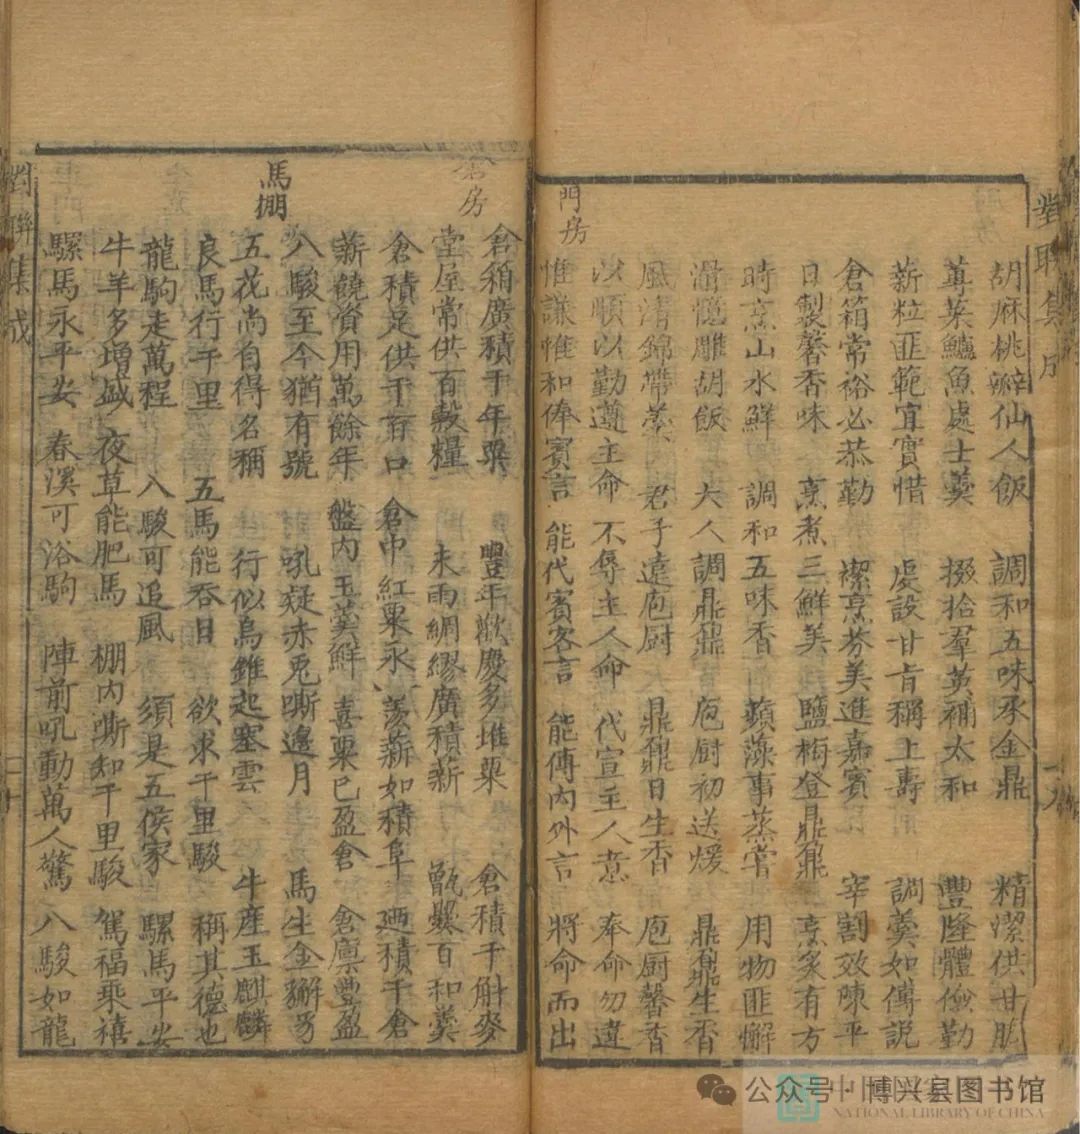 對聯集成
胡麻桃瓣仙人飯 調和五味承金鼎 精潔供甘肥
蓴菜鱸魚處士羹 掇拾羣英補太和 豐隆體儉勤
薪粒匪範宜實惜 虔設甘旨稱上壽 調羹如傅説
倉箱常裕必恭勤 潔烹芬美進嘉賓 宰割效陳平
日製馨香味 烹煮三鮮美 鹽梅登鼎鼐 烹炙有方
時烹山水鮮 調和五味香 蘋藻事蒸嘗 用物匪懈
滑憶雕胡飯 大人調鼎鼐 庖厨初送煖 鼎鼐生香
風清錦帶羹 君子遠庖厨 鼎鼐日生香 庖厨馨香
門房
以順以勤遵主命 不辱主人命 代宣主人意 奉命勿違
惟謙惟和俸賓言 能代賓客言 能傳內外言 將命而出
倉房
倉箱廣積千年粟 豐年歡慶多堆粟 倉積千斛麥
堂屋常供百穀糧 未雨綢繆廣積薪 甑爨百和羹
倉積足供千百口 倉中紅粟永 羨薪如積阜 廼積千倉
薪饒資用萬餘年 盤內玉羹鮮 喜粟已盈倉 倉廪豐盈
馬棚
八駿至今猶有號 吼疑赤兎嘶邊月 馬生金獬豸
五花尚自得名稱 行似烏錐起塞雲 牛産玉麒麟
良馬行千里 五馬能吞日 欲求千里駿 稱其德也
龍駒走萬程 八駿可追風 須是五侯家 騾馬平安
牛羊多增盛 夜草能肥馬 棚內嘶知千里駿 駕福乘禧
騾馬永平安 春溪可浴駒 陣前吼動萬人驚 八駿如龍
對聯集成
公众号·博兴县图书馆
NATIONAL LIBRARY OF CHINA